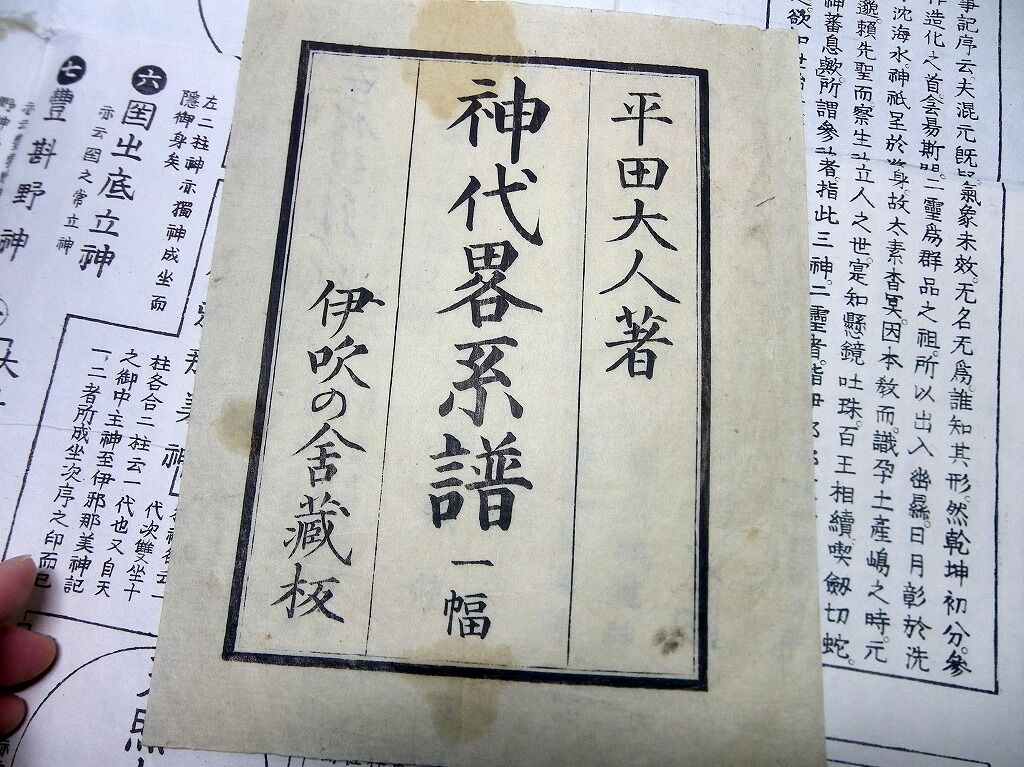 事記序云夫混元既氣象未效。无名无爲。誰知其形。然乾坤初分。參
造化之首。陰昜斯二靈爲群品之祖。所以出入幽顯。日月彰於洗
沈海水。神祇呈於身。故太素杳冥。因本敎而。識孕土產嶋之時。元
邈。賴先聖而察生立人之世。寔知懸鏡吐珠。百王相續喫劔切蛇。
神蕃息歟。所謂參者指此三神。二靈者。指伊
欲
平田大人著
神代畧系譜一幅
伊吹の舍藏板
左二柱神亦獨神成坐而
隱御身矣
六
国之底立神
亦云国之常立神
七
豐斟野神
那美神
代次雙坐十
柱各合二柱云一代也又自天
之御中主神至伊邪那美神記
一二者所成坐次序之印而已